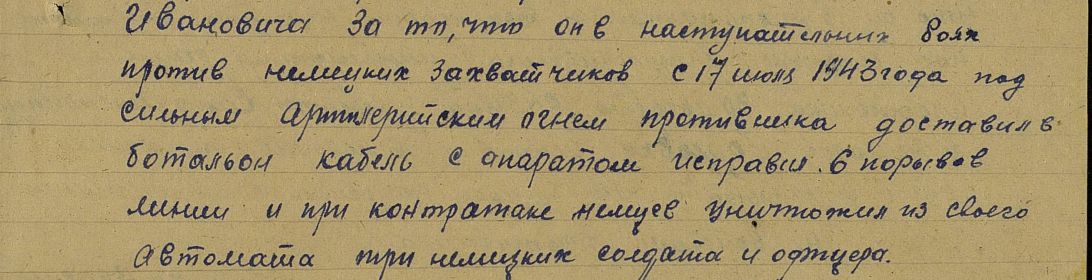 Ивановича За то, что он в наступательных боях
против немецких захватчиков с 17 июля 1943 года под
сильным артилерийским огнем противника доставил в
ботальон кабель с апаратом исправил 6 порывов
линии и при контратаке немцев уничтожил из своего
автомата три немецких солдата и офицера.